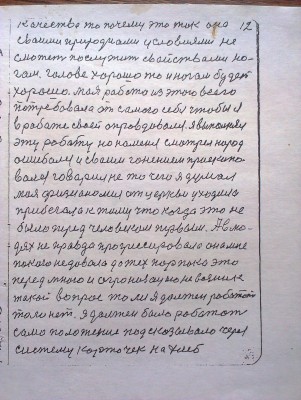 качества то почему это так она 12
своими природными условиями не
сможет послужит свойствами но-
гам. голове хорошо то и ногам будет
хорошо. моя работа из этого всего
потребовала от самого себя чтобы я
в работе своей оправдовался. я выполнял
эту работу но на меня смотрел народ
ошибался и своим гонением
вался говорил не то чего я думал
моя физианомия от церкви уходила
прибегала к тому что когда это не
было перед человеком первым. А в лю-
дях не правда прогрессировало она мне
покою недовала до тех пор пока это
передо мною и организацию не возник
такой вопрос то ли я должен работат
то ли нет. я должен был работат
само положение подсказывало через
систему карточек на хлеб